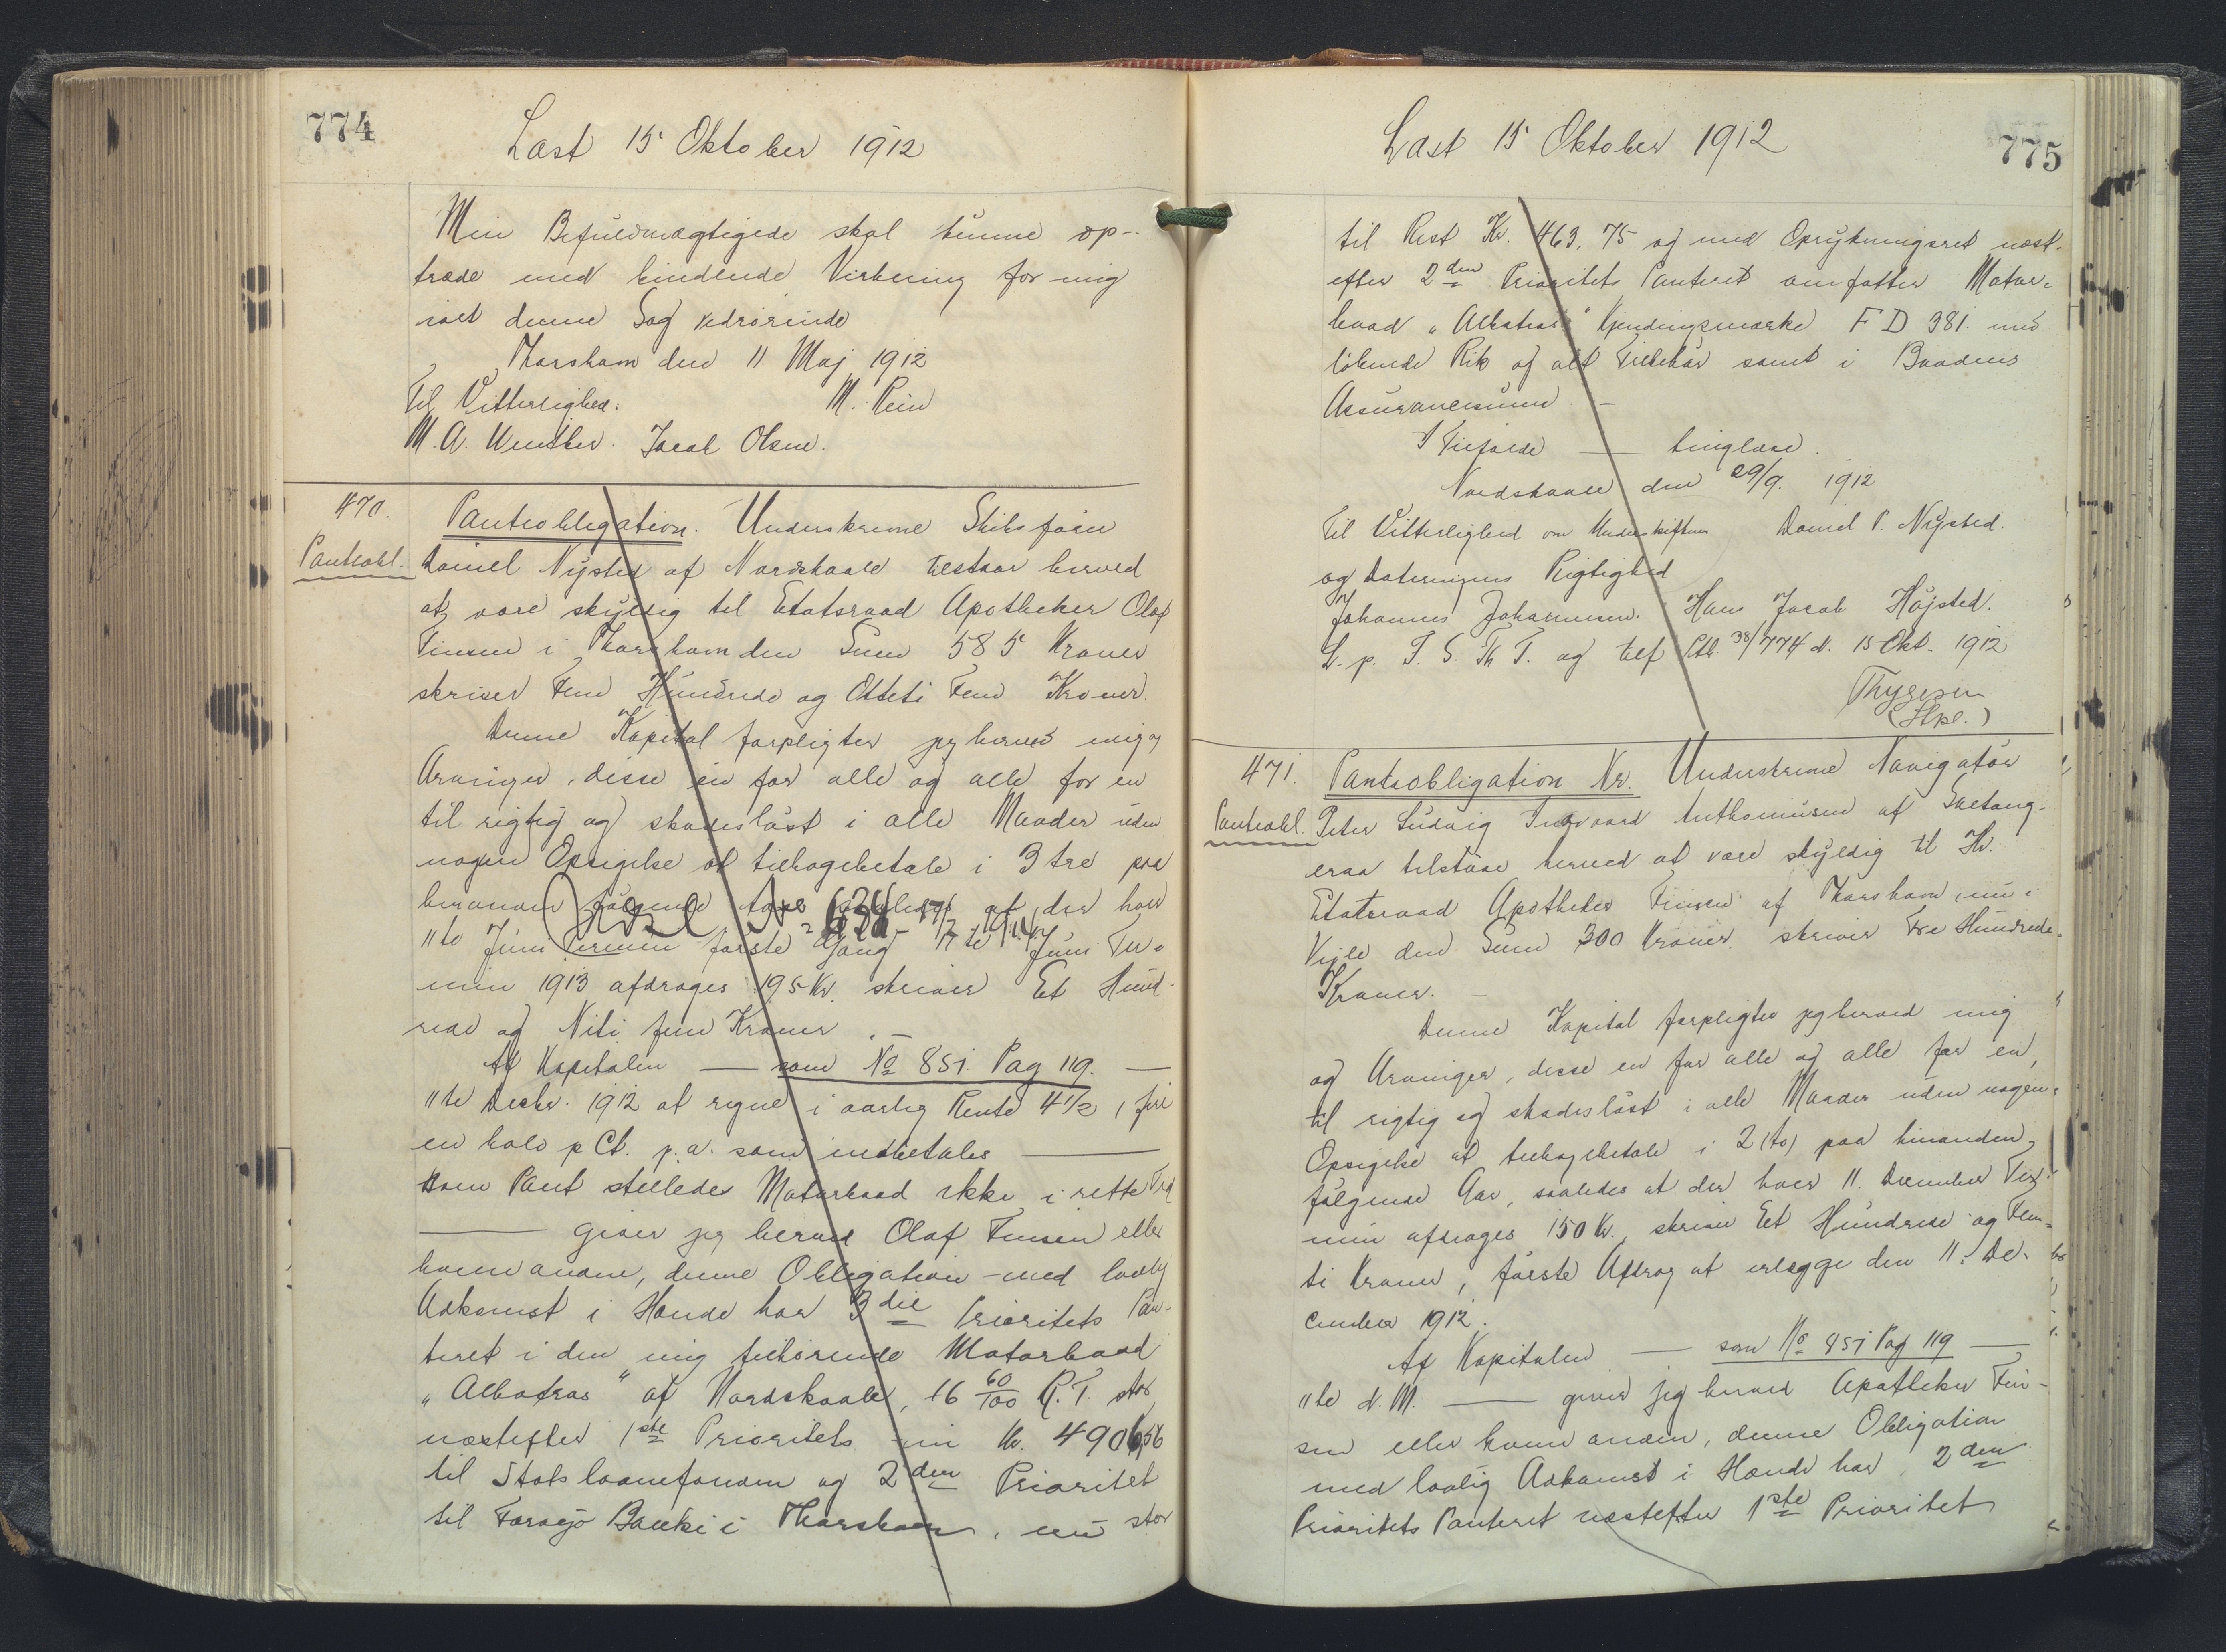 774
Læst 15 Oktober 1912
Min Befuldmægtigede skal kunne op-
træde med bindende Virkning for mig
i alt denne Sag vedrørende
Thorshavn den 11. Maj 1912
Til Vitterlighed: M. Rein
M. A. Winther. Jacob Olsen.
470. Pantobligation. Undertegnede Skibsfører
Pantobl. Daniel Nysted af Nordskaale tilstaar herved
at være skyldig til Etatsraad Apotheker Olaf
Finsen i Thorshavn den Sum 585 Kroner
skriver Fem Hundrede og Otteti Fem Kroner.
Denne Kapital forpligter jeg herved mig og
Arvinger, disse en for alle og alle for en
til rigtig og skadesløst i alle Maader uden
nogen Opsigelse at tilbagebetale i 3 tre paa
hinanden følgende Aar saaledes at der hver
11te Juni Termin første Gang 11te Juni Ter-
min 1913 afdrages 195 Kr. skriver Et Hund-
rede og Niti fem Kroner. —
Af Kapitalen — som No 851. Pag 119. —
11te Decbr. 1912 at regne i aarlig Rente 4 1/2, fire
en halv p Ct. p. a. som indbetales —
Som Pant stilledes Motorbaad ikke i rette Tid
— giver jeg herved Olaf Finsen eller
hvem anden, denne Obligation med lovlig
Adkomst i Hænde har 3die Prioritets Pan-
teret i den mig tilhørende Motorbaad
"Albatros" af Nordskaale, 16 60/100 R.T. stor
næstefter 1ste Prioritets Kr. 4906,56
til Statslaanefonden og 2den Prioritet
til Færøjo Banki i Thorshavn, nu stor
775
Læst 15 Oktober 1912
til Rest Kr. 463,75 og med Oprykningsret næst-
efter 2den Prioritets Panteret omfatter Motor-
baad "Albatros" Kjendingsmærke FD 381. med
løbende Rik og alt Tilbehør samt i Baadens
Assurancesum. —
I Tilfælde — tinglæse.
Nordskaale den 29/9. 1912
Til Vitterlighed om Underskriftens Daniel P. Nysted.
og Dateringens Rigtighed
Johannes Johannesen. Hans Jacob Højsted.
L. p. F. S. Th T. og tilf Ptb 38/774 d. 15 Okt. 1912
Thygesen
(Hpl.)
471. Pantsobligation Nr. Undertegnede Navigatør
Pantobl. Peter Ludvig Ingvard Anthoniusen af Saltang-
eraa tilstaar herved at være skyldig til Hr.
Etatsraad Apotheker Finsen af Thorshavn, nu i
Vejle den Sum 300 Kroner. skriver Tre Hundrede
Kroner. —
Denne Kapital forpligter jeg herved mig
og Arvinger, disse en for alle og alle for en,
til rigtig og skadesløst i alle Maader uden nogen
Opsigelse at tilbagebetale i 2 (to) paa hinanden
følgende Aar, saaledes at der hver 11. December Ter-
min afdrages 150 Kr. skriver Et Hundrede og Fem-
ti Kroner, første Afdrag at erlægge den 11. De-
cember 1912.
Af Kapitalen — som No 851 Pag 119 —
11te d. M. — giver jeg herved Apotheker Fin-
sen eller hvem anden, denne Obligation
med lovlig Adkomst i Hænde har 2den
Prioritets Panteret næstefter 1ste Prioritet